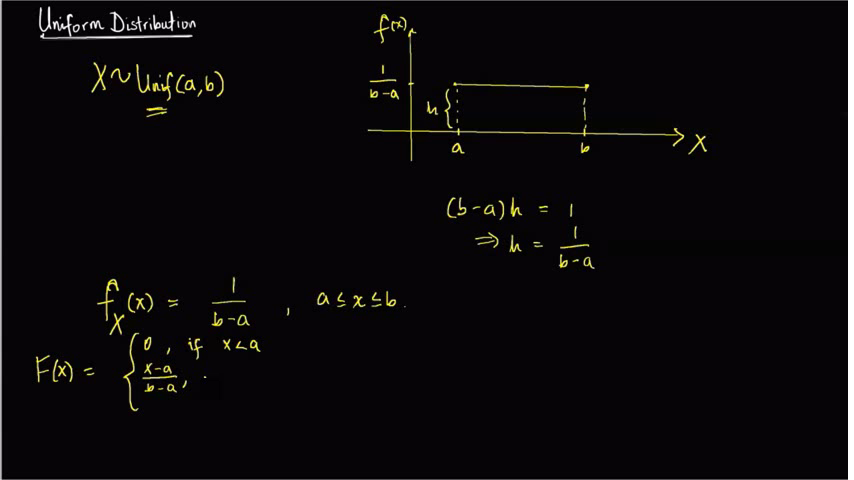 Uniform Distribution
X ~ Unif(a,b)
f(x)
1/(b-a)
h {
a
b
X
(b-a)h = 1
⇒ h = 1/(b-a)
f_X(x) = 1/(b-a) , a ≤ x ≤ b.
F(x) = { 0 , if x < a
(x-a)/(b-a) ,